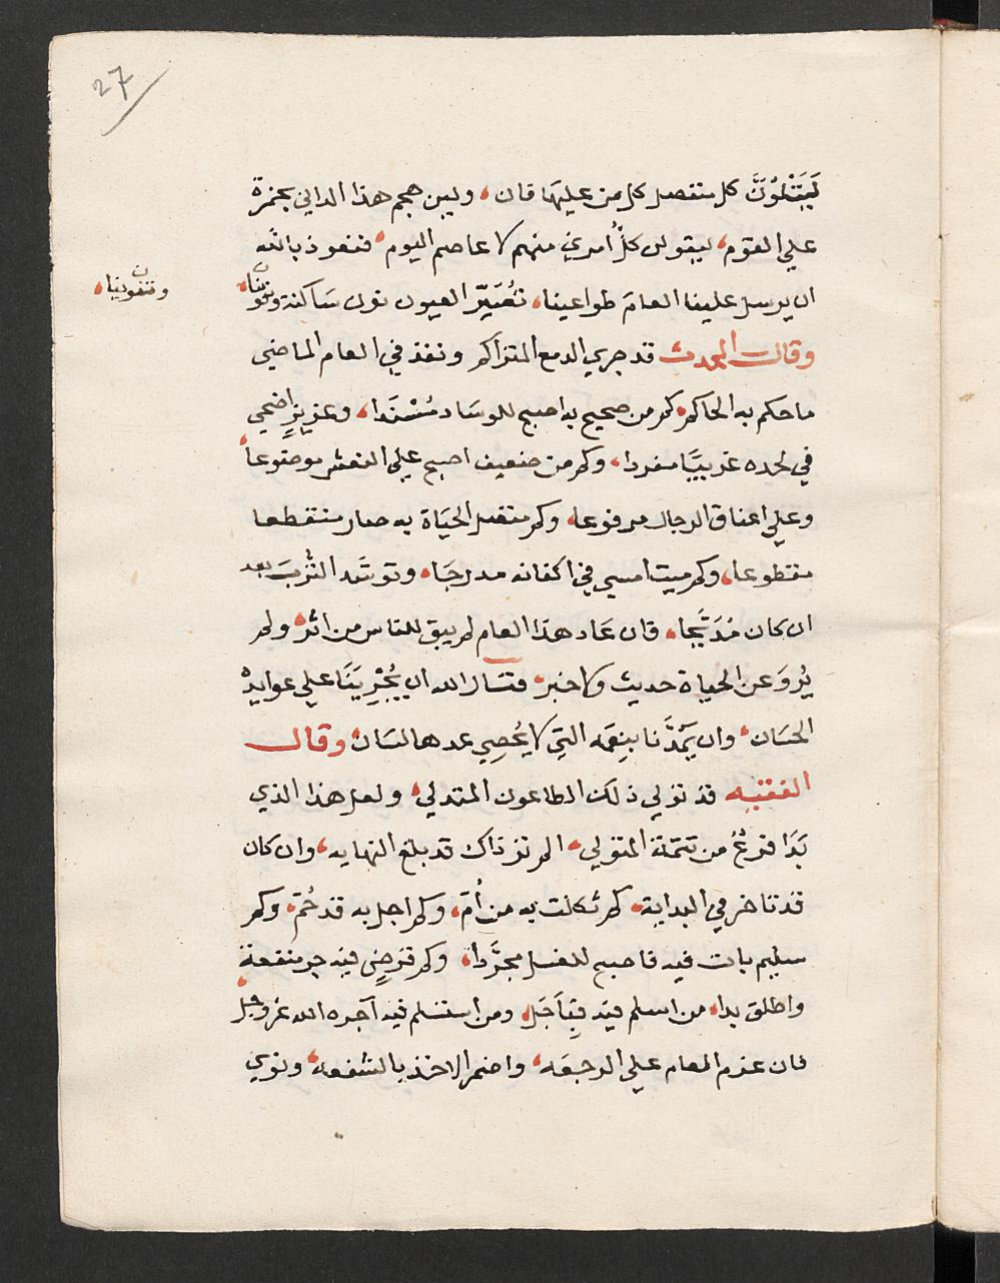 27
لَيَتْلُوَنَّ كل متفصل كل من عليها فان، ولين هجم هذا الداني بجمرة
علي القوم، ليقولن كلُّ امرئٍ منهم لا عاصم اليوم، فنعوذ بالله
ان يرسل علينا العام طواعينا، تُعَيِّر العيون نون ساكنة وتنوينا،
وتنوينا،
وقال المحدث قد جري الدمع المتراكم ونفذ في العام الماضي
ما حكم به الحاكم، كم من صحيح به اصبح للوساد مُسْنَدا، وعزيزٍ اضحي
في لحده غريبًا مفردا، وكم من ضعيف اصبح علي النعش موضوعا،
وعلي اعناق الرجال مرفوعا، وكم متصل الحياة به صار منقطعا
مقطوعا، وكم ميت امسي في اكفانه مدرجا، وتوسَّد التُرْبَ بعد
ان كان مُدَبَّجا، فان عاد هذا العام لم يبق للناس من اثر، ولم
يُروَ عن الحياة حديث ولا خبر، فنسال الله ان يُجْرِيَنَا علي عوايده
الحسان، وان يَمُدَّنا بنِعَمه التي لا يُحصِي عدها لسان، وقال
الفقيه قد تولي ذلك الطاعون المتدلي، ولعل هذا الذي
بَدَا فرعٌ من تتمة المتولي، الم تر ذاك قد بلغ النهايه، وان كان
قد تاخر في البداية، كم ثكلت به من أُم، وكم اجل به قد حُمّ، وكم
سليم بات فيه فاصبح للغسل مجرَّدا، وكم قرضٍ فيه جر منفعة
واطلق يدا، من اسلم فيه فبِأَجَل، ومن استسلم فيه آجره الله عز وجل،
فان عزم العام علي الرجعه، واضمر الاخذ بالشفعه، ونوي